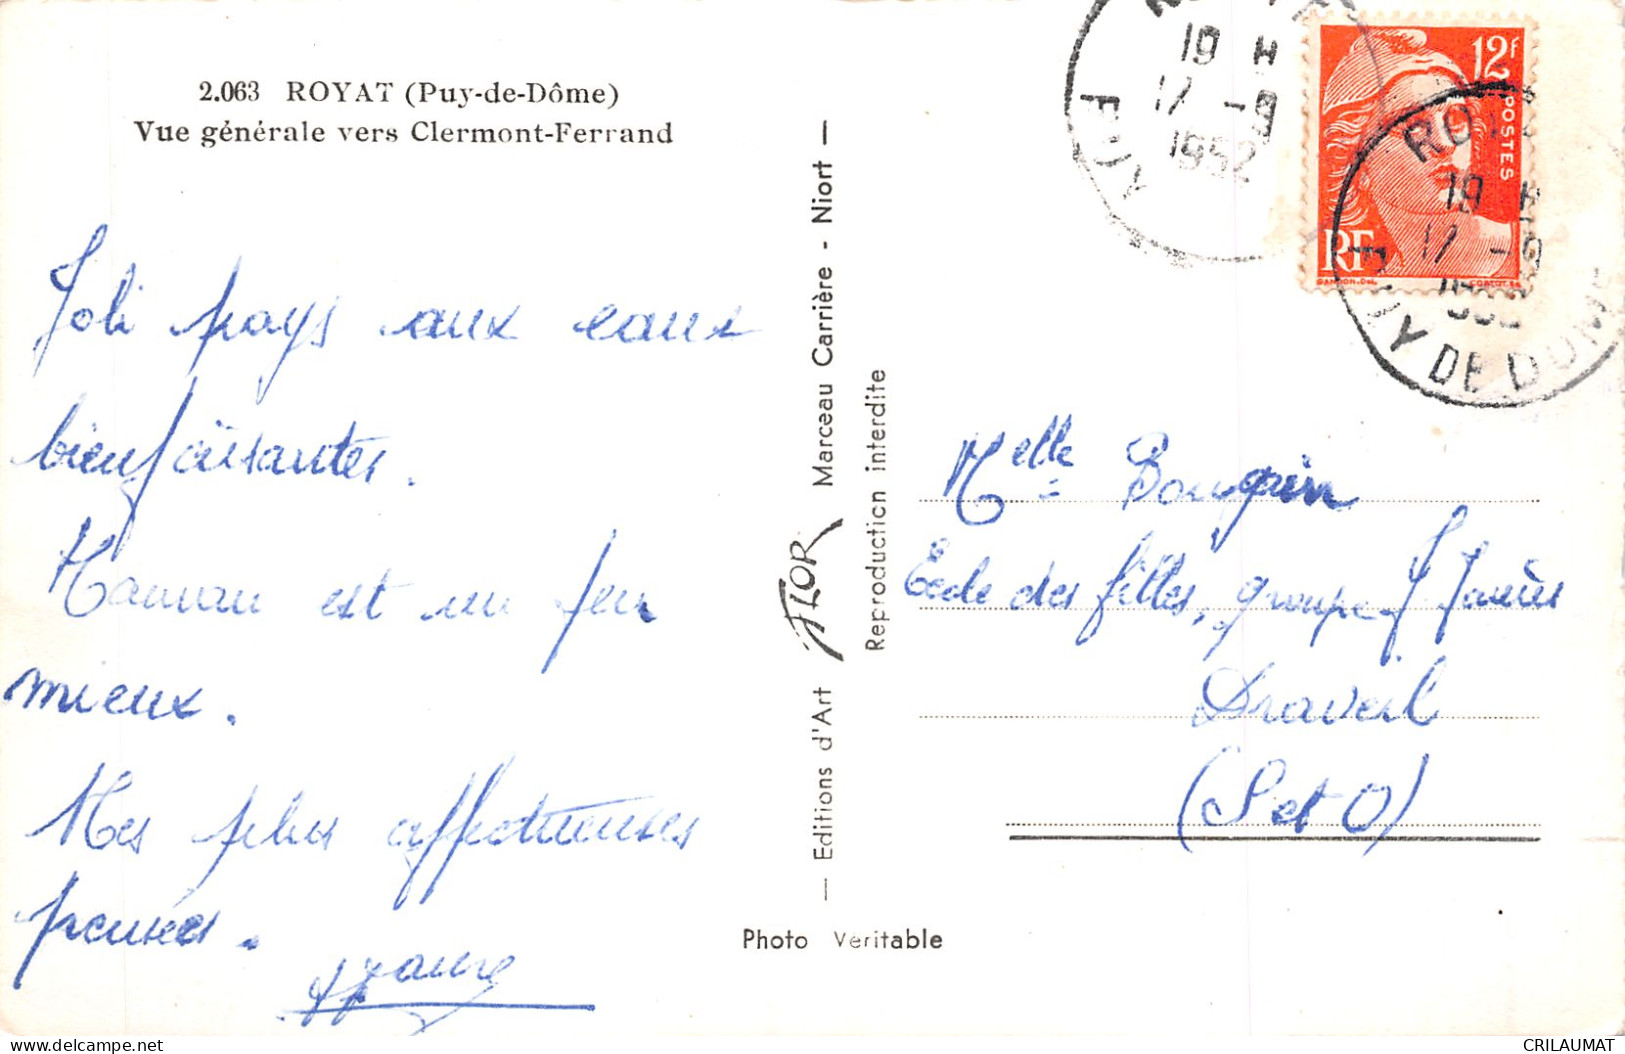 2.063 ROYAT (Puy-de-Dôme)
Vue générale vers Clermont-Ferrand
Joli pays aux eaux
bienfaisantes.
Maman est un peu
mieux.
Mes plus affectueuses
pensées.
— Editions d'Art JFLOR Marceau Carrière - Niort —
Reproduction interdite
Photo Veritable
19 H
17 -9
1952
12f
POSTES
RF
GANDON.DEL.
ROYAT
19 H
17 -9
PUY DE DOME
Melle Bougrin
Ecole des filles, groupe J Jaurès
Draveil
(S et O)
CRILAUMAT